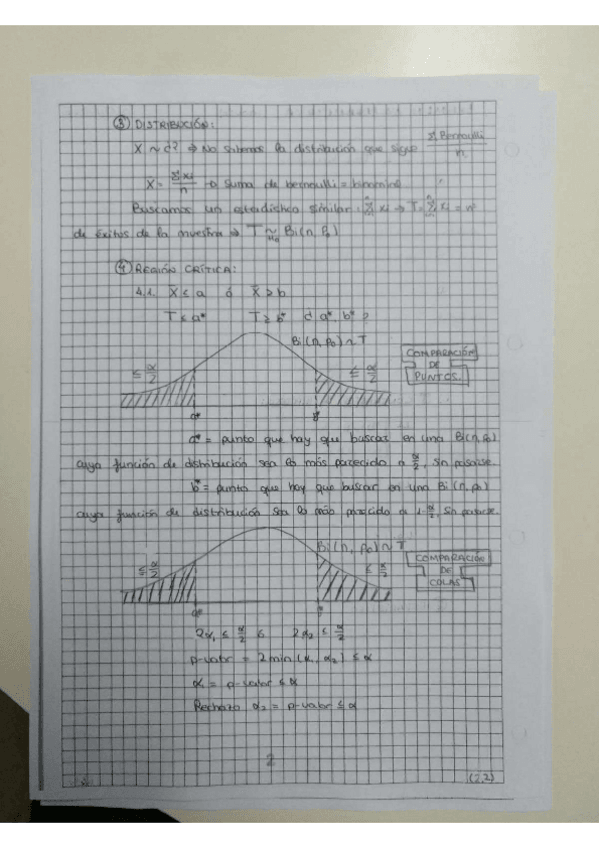 ③ DISTRIBUCIÓN:
X ~ ¿? ⇒ No sabemos la distribución que sigue Σ Bernoulli / n
X̄ = Σxi / n → Suma de bernoulli = binomial
Buscamos un estadístico similar: Σ xi → T = Σ xi = nº
de éxitos de la muestra ⇒ T ~ Bi(n, p₀)
H₀
④ REGIÓN CRÍTICA:
4.1. X̄ ≤ a ó X̄ ≥ b
T ≤ a* T ≥ b* ¿ a*, b* ?
Bi(n, p₀) ~ T
≤ α/2 ≤ α/2
COMPARACIÓN
DE
PUNTOS.
a*
a* = punto que hay que buscar en una Bi(n, p₀)
cuya función de distribución sea lo más parecido a α/2, sin pasarse.
b* = punto que hay que buscar en una Bi(n, p₀)
cuya función de distribución sea lo más parecido a 1-α/2, sin pasarse.
Bi(n, p₀) ~ T
≤ α/2 ≤ α/2
COMPARACIÓN
DE
COLAS
a*
2α₁ ≤ α/2 ó 2α₂ ≤ α/2
p-valor = 2 min (α₁, α₂) ≤ α
α = p-valor ≤ α
Rechazo α₂ = p-valor ≤ α
2
(2.2)